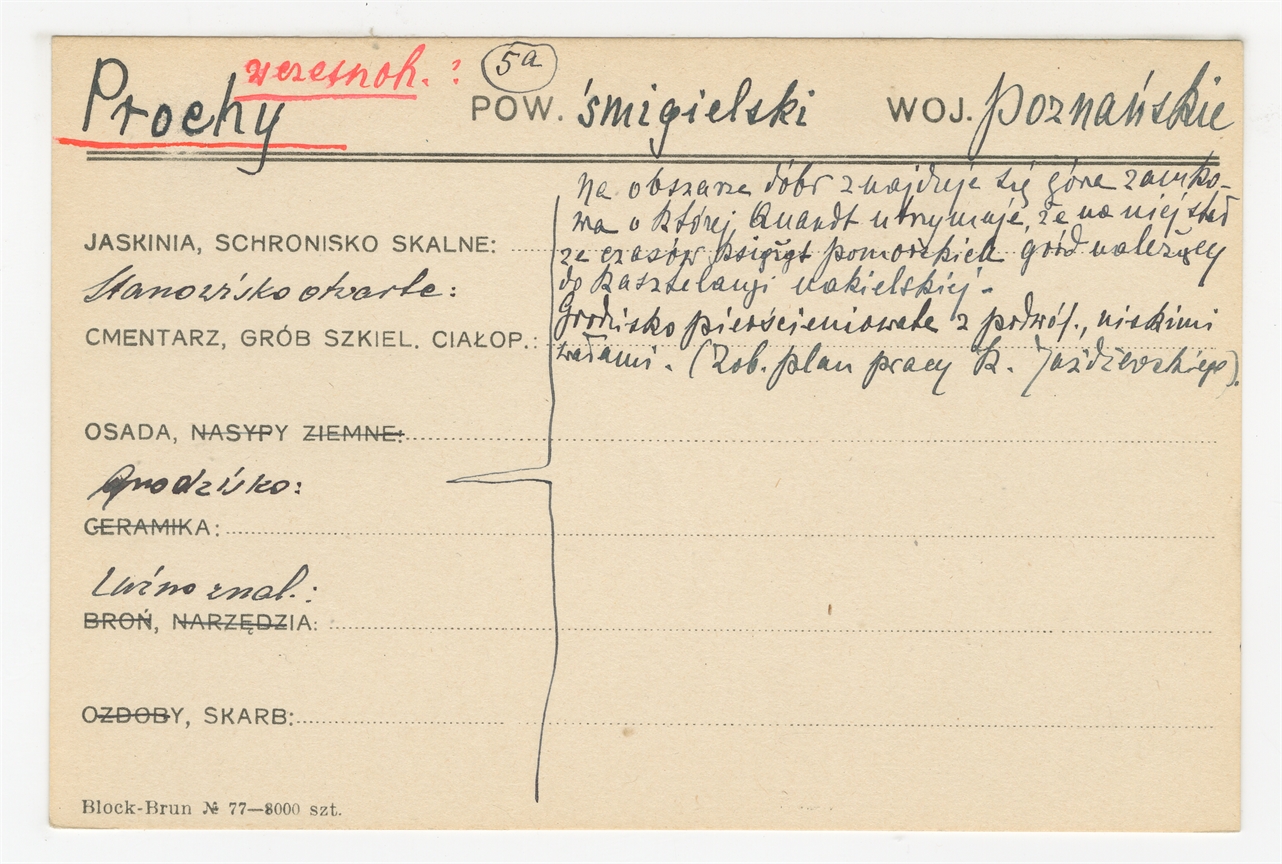 wczesnoh. ?
5a
Prochy POW. śmigielski WOJ. poznańskie
Na obszarze dóbr znajduje się góra zamko-
wa o której Quandt utrzymuje, że na niej stał
JASKINIA, SCHRONISKO SKALNE:
ze czasów książąt pomorskich gród należący
Stanowisko otwarte:
do kasztelanji nakielskiej.
Grodzisko pierścieniowate z podwój., niskimi
CMENTARZ, GRÓB SZKIEL. CIAŁOP.:
wałami. (Zob. plan pracy K. Jażdżewskiego).
OSADA, NASYPY ZIEMNE:
Grodzisko:
CERAMIKA:
Luźno znal.:
BROŃ, NARZĘDZIA:
OZDOBY, SKARB:
Block-Brun № 77—8000 szt.